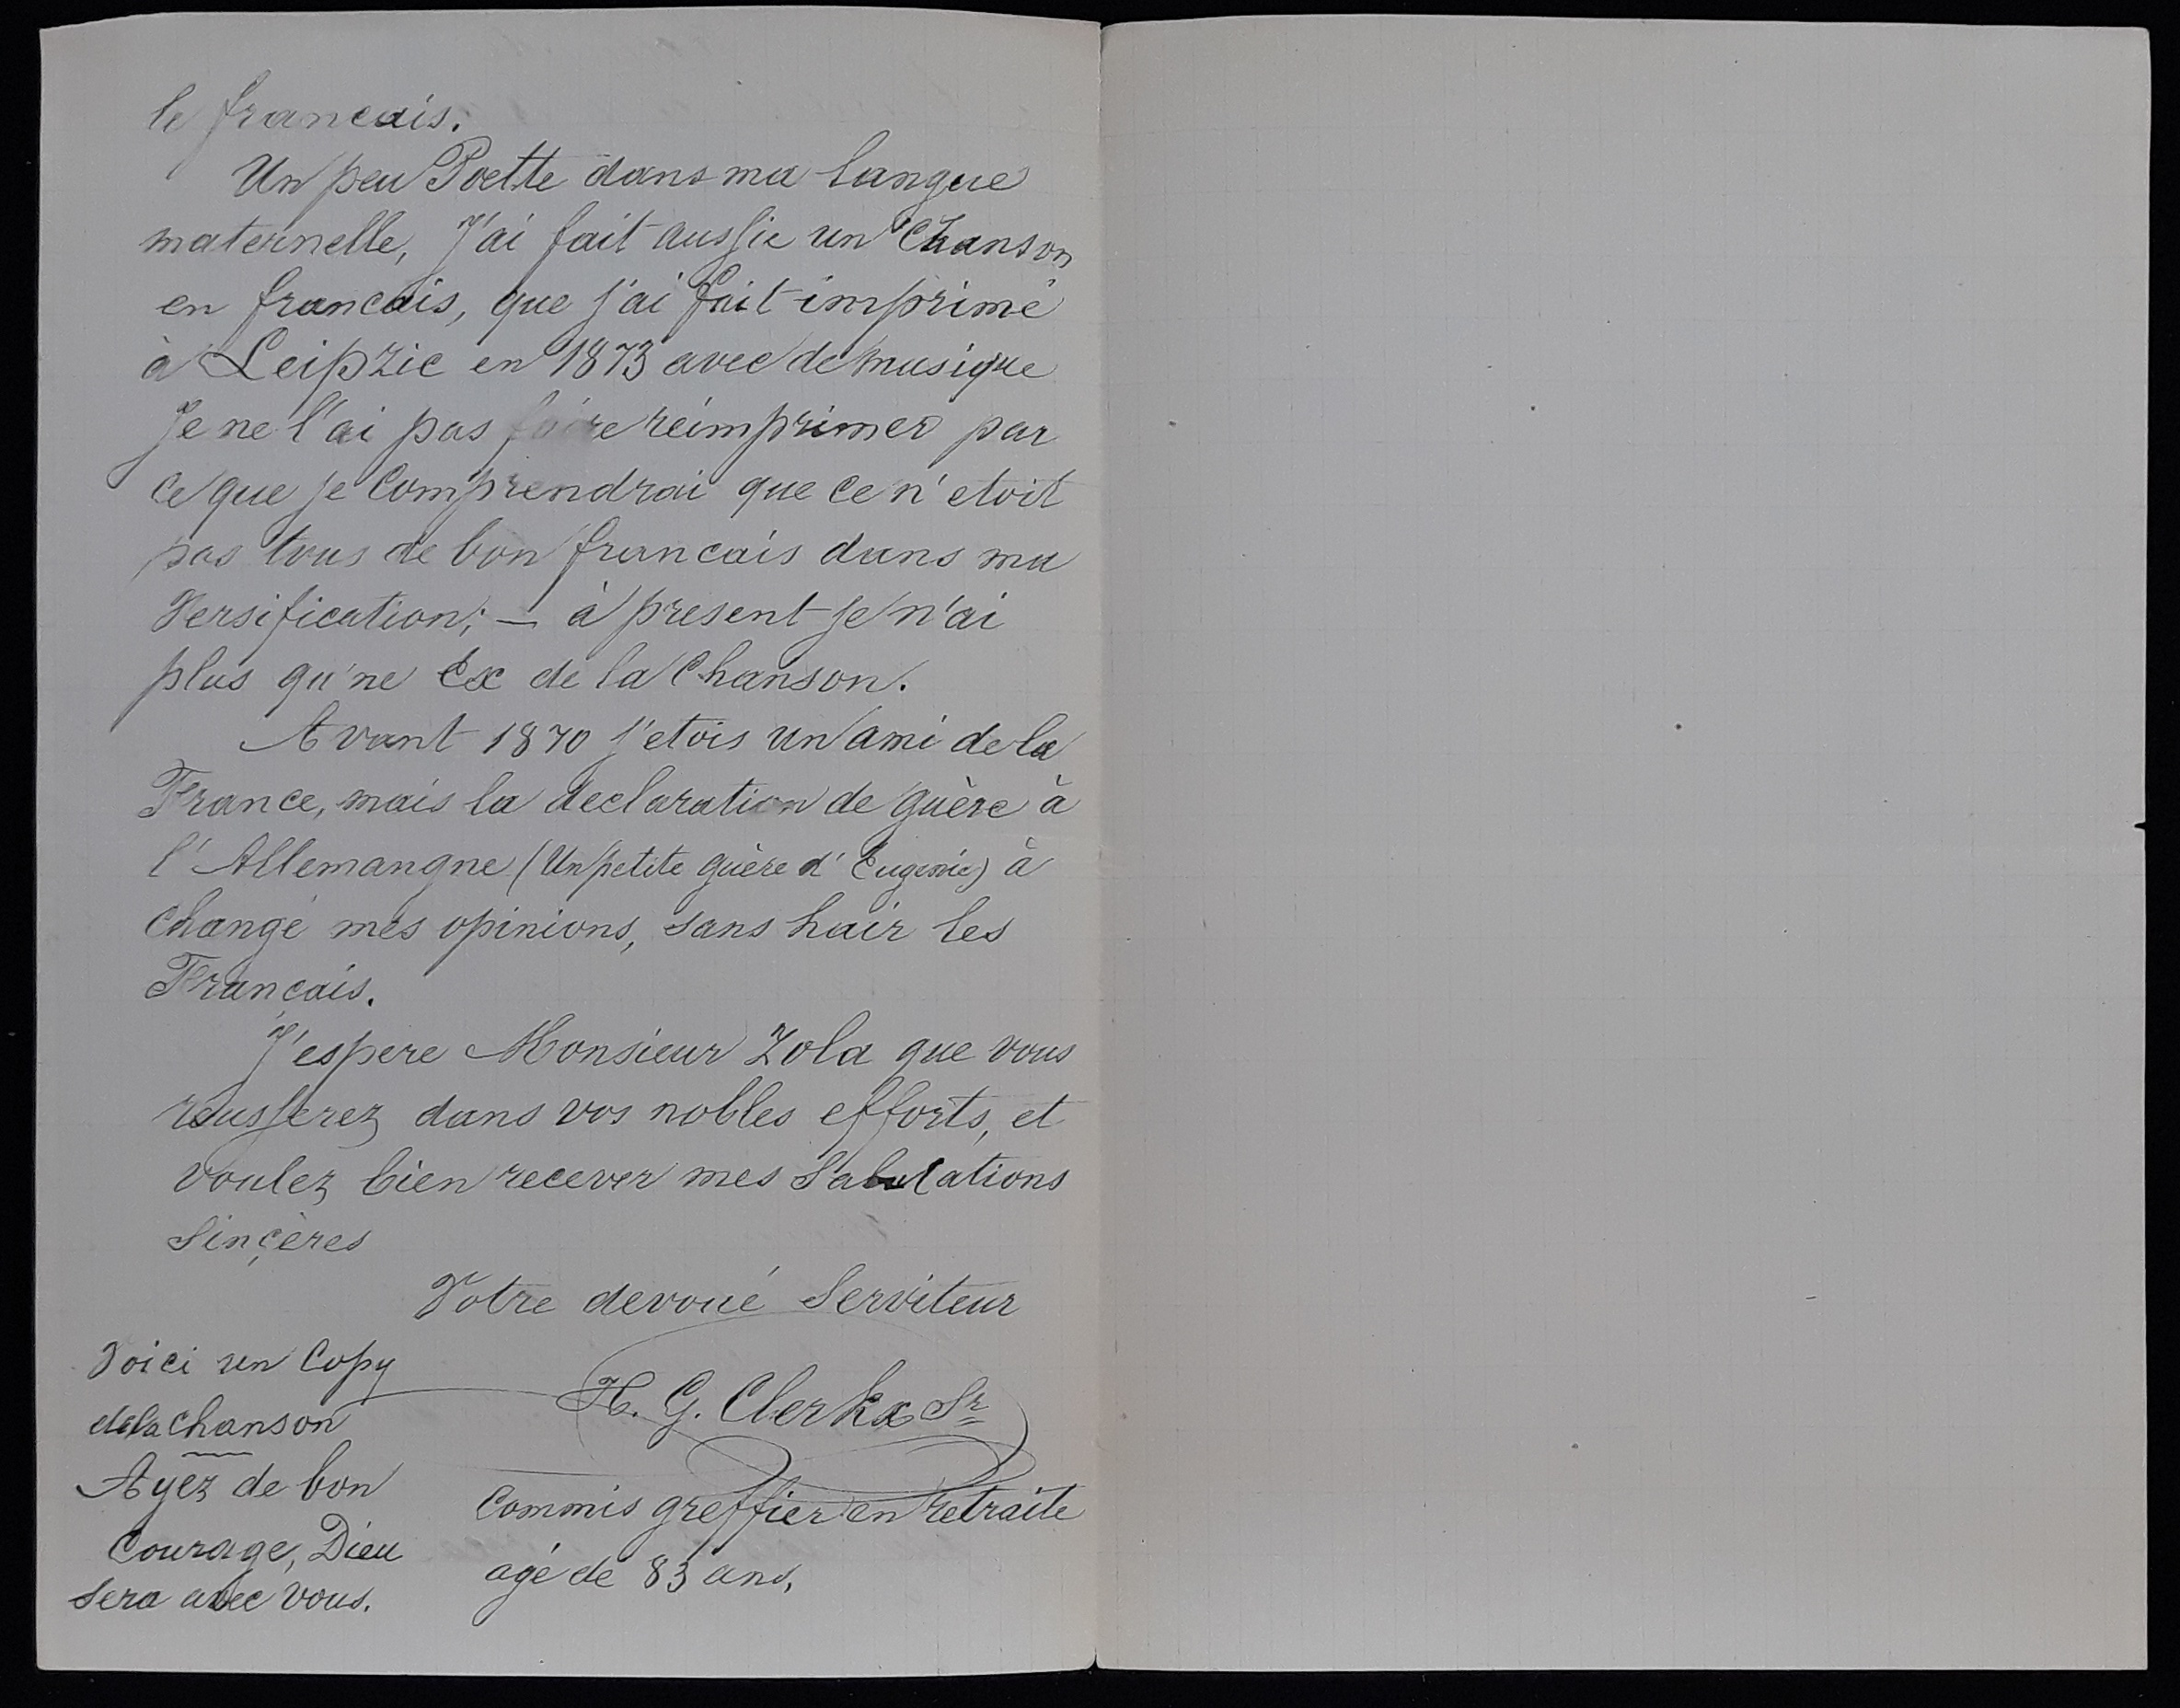 le francais.
Un peu Poette dans ma langue
maternelle, J'ai fait aussie un Chanson
en francais, que j'ai fait imprimé
à Leipzic en 1873 avec de musique
Je ne l'ai pas faire réimprimer par
ce que je comprendrai que ce n'etoit
pas tous de bon francais dans ma
Versification; — à present je n'ai
plus qu'ne Ex de la Chanson.
Avant 1870 j'etois un ami de la
France, mais la declaration de guère à
l'Allemangne (Un petite guère d'Eugenie) à
changé mes opinions, sans hair les
Français.
J'espere Monsieur Zola que vous
reusserez dans vos nobles efforts, et
voulez bien recever mes Salutations
Sinçères
Votre devoué Serviteur
H. G. Clerkx Sr
Commis greffier en retraite
agé de 83 ans,
Voici un Copy
de la chanson
Ayez de bon
Courage, Dieu
sera avec vous.